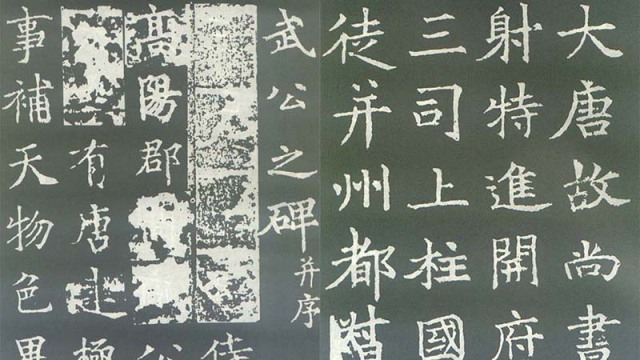 大唐故尚書
射特進開府
三司上柱國
徒并州都督
武公之碑并序
高陽郡
有唐建極
事補天物色